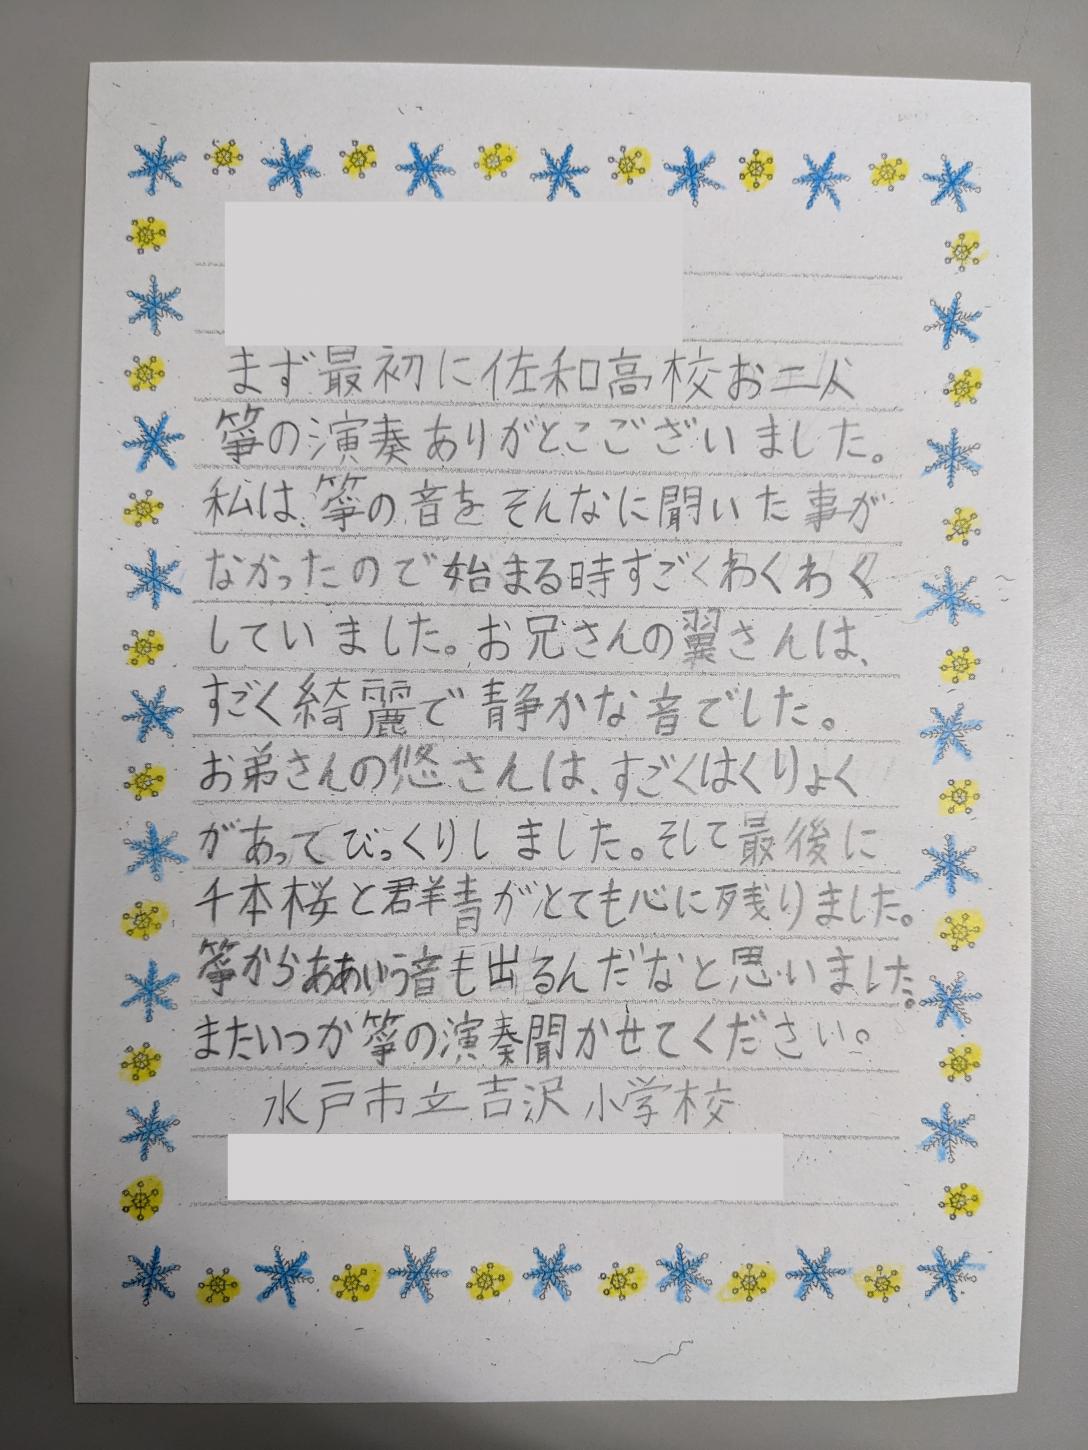 まず最初に佐和高校お二人
箏の演奏ありがとこございました。
私は、箏の音をそんなに聞いた事が
なかったので始まる時すごくわくわく
していました。お兄さんの翼さんは、
すごく綺麗で静かな音でした。
お弟さんの悠さんは、すごくはくりょく
があってびっくりしました。そして最後に
千本桜と群青がとても心に残りました。
箏からああいう音も出るんだなと思いました。
またいつか箏の演奏聞かせてください。
水戸市立吉沢小学校